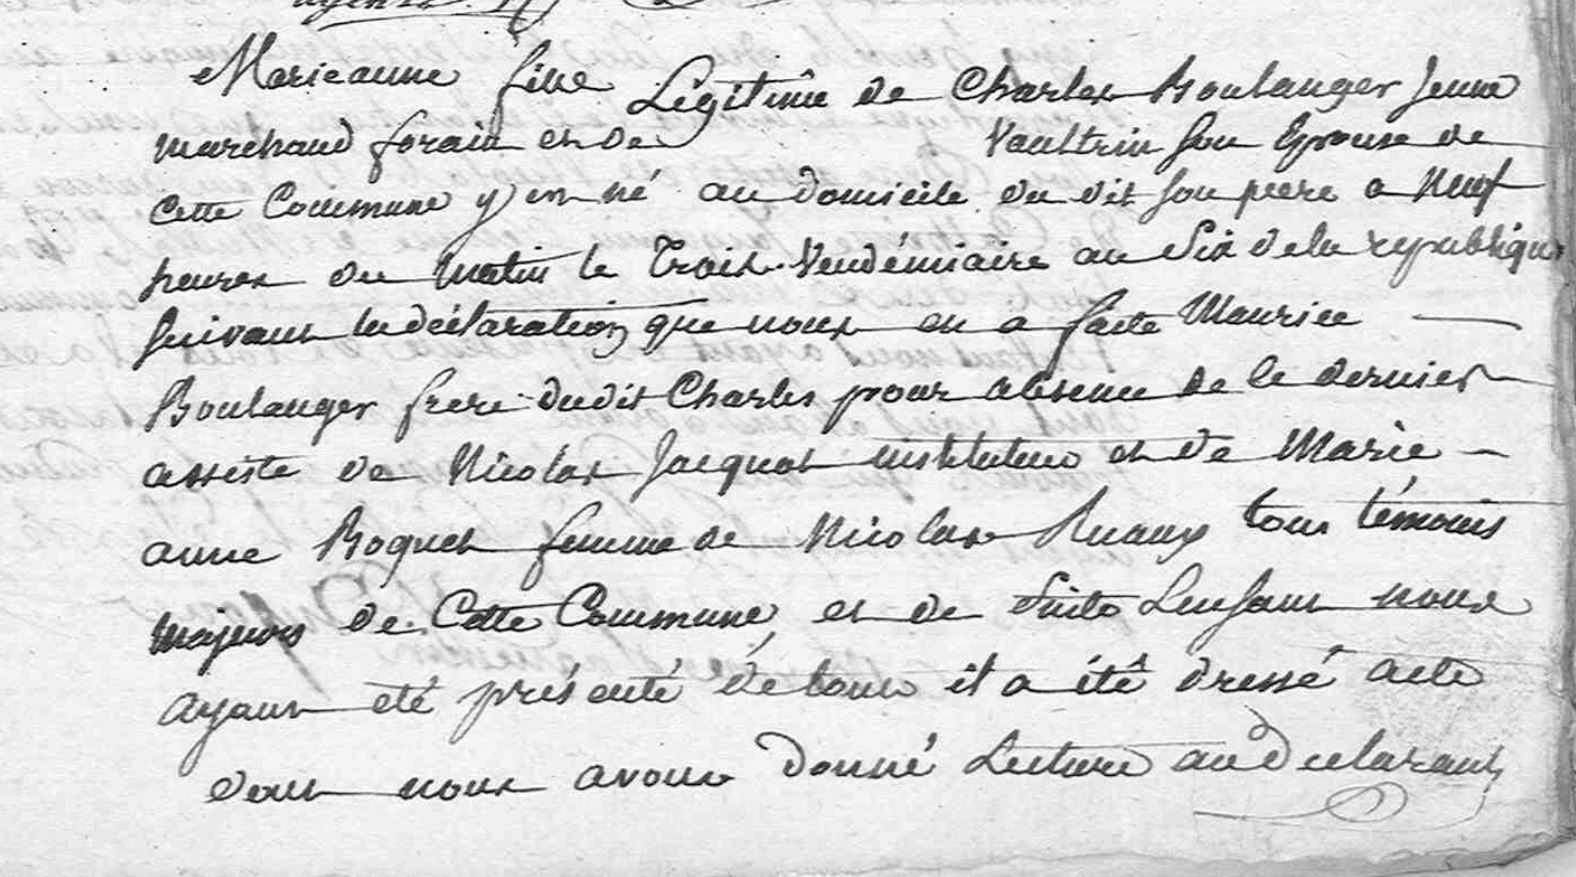 Marieanne fille Légitime de Charles Boulanger Jeune
marchand forain et de Vaultrin son Epouse de
cette Commune y est né au domicile du dit son pere a Neuf
heures du matin le Trois Vendémiaire an Six de la republique
suivant la déclaration que nous en a faite Maurice
Boulanger frere dudit Charles pour absence de le dernier
assisté de Nicolas Jacquot instituteur et de Marie
anne Roquet femme de Nicolas Ruaux tous témoins
majeurs de Cette Commune, et de Suite Lenfant nous
ayant eté présenté de tout il a été dressé acte
dont nous avons Donné Lecture au Declarant